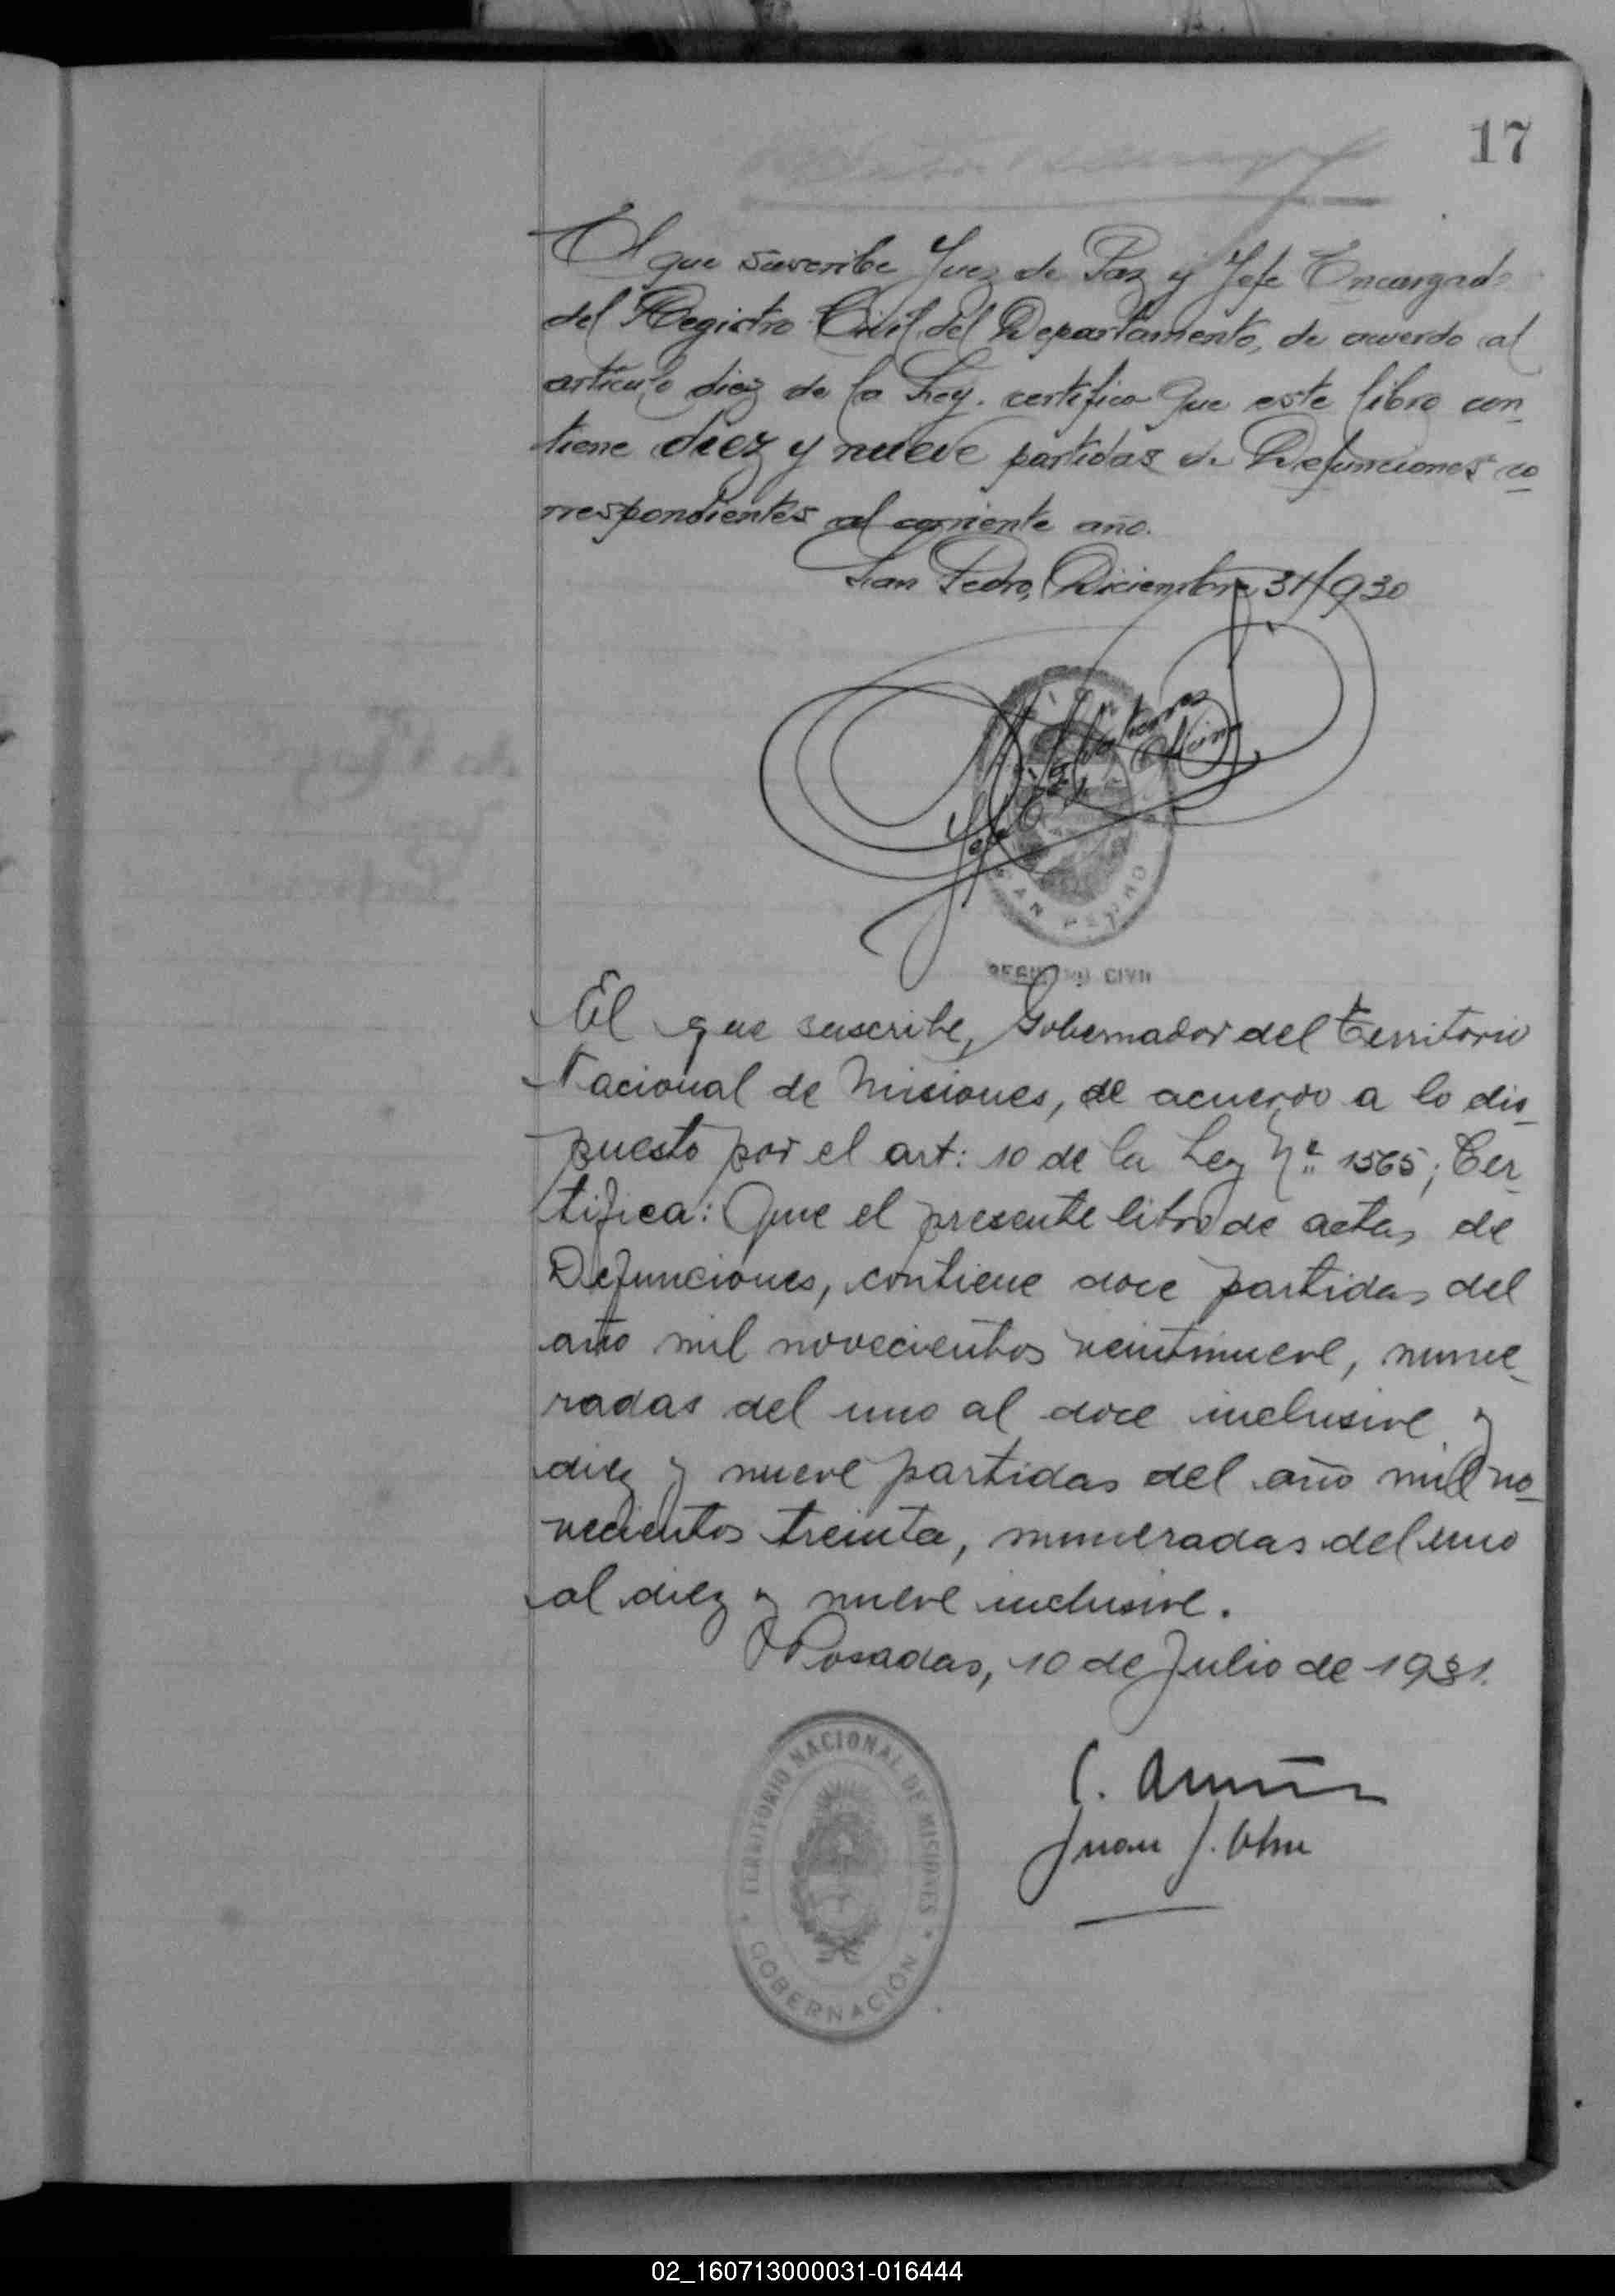 17
El que suscribe Juez de Paz y Jefe Encargado
del Registro Civil del Departamento, de acuerdo al
artículo diez de la Ley. certifica que este libro con
tiene diez y nueve partidas de Defunciones co
rrespondientes al corriente año.
San Pedro, Diciembre 31/930
SAN PEDRO
REGISTRO CIVIL
El que suscribe, Gobernador del Territorio
Nacional de Misiones, de acuerdo a lo dis
puesto por el art: 10 de la Ley Nº 1565; Cer
tifica: Que el presente libro de actas de
Defunciones, contiene doce partidas del
año mil novecientos veintinueve, nume
radas del uno al doce inclusive y
diez y nueve partidas del año mil no
vecientos treinta, numeradas del uno
al diez y nueve inclusive.
Posadas, 10 de Julio de 1931.
TERRITORIO NACIONAL DE MISIONES
GOBERNACIÓN
C.
Juan J.
02_160713000031-016444